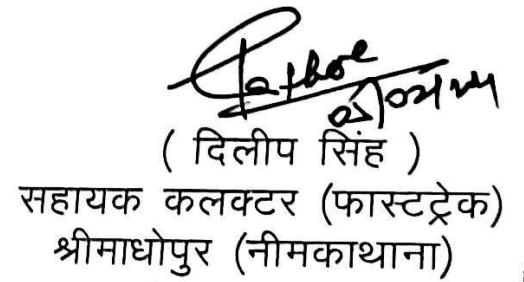 ( दिलीप सिंह )
सहायक कलक्टर (फास्टट्रेक)
श्रीमाधोपुर (नीमकाथाना)